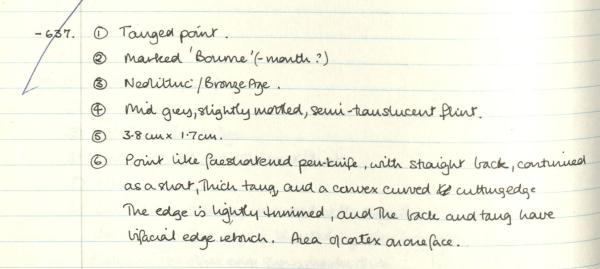 -637. ① Tanged point.
② Marked 'Bourne' (-mouth?)
③ Neolithic/Bronze Age.
④ Mid grey, slightly mottled, semi-translucent flint.
⑤ 3.8cm x 1.7cm.
⑥ Point like foreshortened pen-knife, with straight back, continued
as a short, thick tang, and a convex curved cutting edge
The edge is lightly trimmed, and the back and tang have
bifacial edge retouch. Area of cortex on one face.